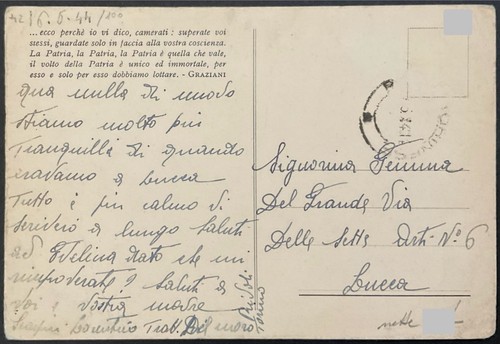 6.6.44
...ecco perchè io vi dico, camerati: superate voi
stessi, guardate solo in faccia alla vostra coscienza.
La Patria, la Patria, la Patria è quella che vale,
il volto della Patria è unico ed immortale, per
esso e solo per esso dobbiamo lottare. - GRAZIANI
qua nulla di nuovo
stiamo molto più
tranquilla di quando
eravamo a Lucca
tutto è più calmo di
scrivervi a lungo saluti
ad Evelina dato che mi
rimproverate? saluti a
voi e vostra madre
Tratt. Del moro
Torino
Signorina Gemma
Del Grande Via
Delle Sette Arti Nº 6
Lucca